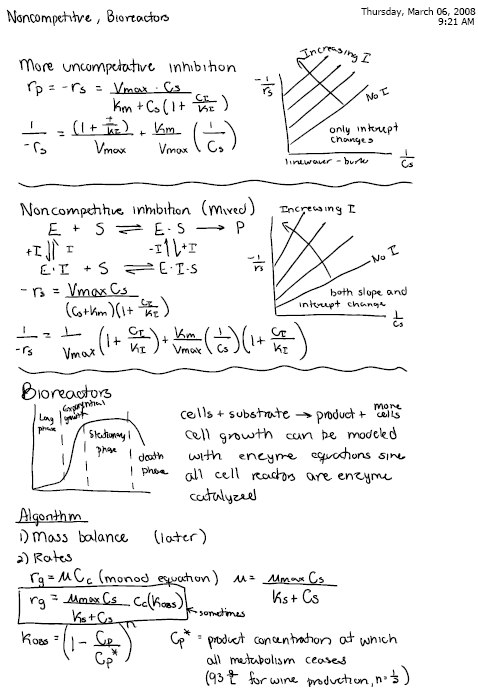 Noncompetitive, Bioreactors
Thursday, March 06, 2008
9:21 AM
More uncompetative inhibition
rp = -rs = Vmax · Cs / Km + Cs(1 + CI/KI)
1/-rs = (1 + I/KI)/Vmax + Km/Vmax (1/Cs)
Increasing I
-1/rs
No I
only intercept
changes
linewaver-burk
1/Cs
Noncompetitive inhibition (mixed)
E + S ⇌ E·S → P
+I ⇅ I -I ⇅ +I
E·I + S ⇌ E·I·S
-rs = Vmax Cs / (Cs+Km)(1+ CI/KI)
1/-rs = 1/Vmax (1 + CI/KI) + Km/Vmax (1/Cs)(1 + CI/KI)
Increasing I
-1/rs
No I
both slope and
intercept change
1/Cs
Bioreactors
Lag phase
Exponential growth
Stationary phase
death phase
cells + substrate → product + more cells
cell growth can be modeled
with enzyme equations sine
all cell reactors are enzyme
catalyzed
Algorithm
1) Mass balance (later)
2) Rates
rg = μCc (monod equation) μ = μmax Cs / Ks + Cs
rg = μmax Cs / Ks + Cs Cc(Kobs) ← sometimes
Kobs = (1 - Cp/Cp*)^n
Cp* = product concentration at which
all metabolism ceases
(93 g/L for wine production, n=1/2)